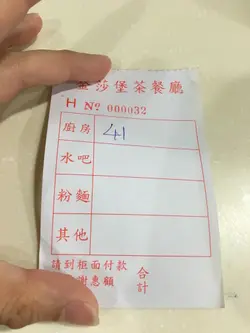 金莎堡茶餐廳
H No 000032
廚房 41
水吧
粉麵
其他
請到柜面付款 合計
謝惠顧